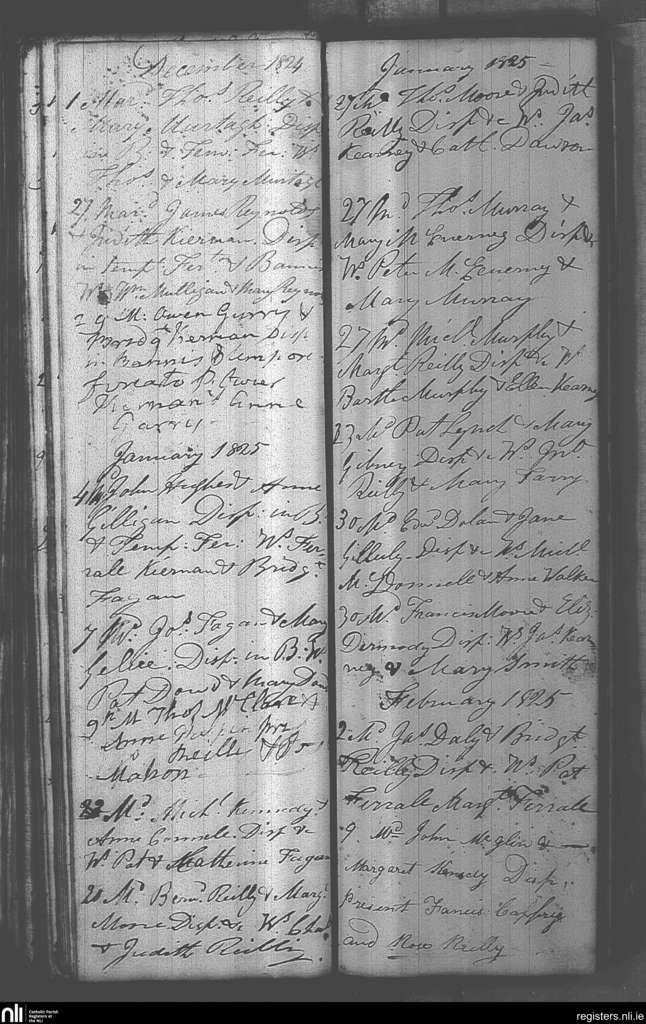 December 1824
1 Mard. Thos. Reilly &
Mary Murtagh. Disp
& Tem: Fer: Ws
Thos. & Mary Murtagh
27 Mard. James Reynolds
& Judith Kiernan. Disp
in temp. Fer. & Bann
Ws. Wm. Mulligan & Mary Reyno
29 M. Owen Garry &
Kiernan Disp
in Bannis & tempore
feriato P. Owen
Kiernan & Anne
Garry
January 1825
4 M. John Hughes & Anne
Gilligan Disp: in B.
& Temp: Fer: Ws. Fer-
rale Kiernan & Bridgt.
Fagan
7 Md. Jos. Fagan & Mary
Disp. in B. Ws.
Pat Dowd & Mary
9th M Thos. McCabe &
Anne
Reille &
Mahon
22 Md. Michl. Kennedy &
Anne Connell. Disp &c
Ws. Pat & Katherine Fagan
20 Md. Bernd. Reilly & Margt.
Moore Disp. &c Ws. Chas.
& Judith Reilly.
January 1825
27 Md. Thos. Moore & Judith
Reilly Disp &c Ws. Jas.
Kearney & Cath. Dawson
27 Md. Thos. Murray &
Mary McEnerney Disp &c
Ws. Peter McEnerny &
Mary Murray
27 Md. Michl. Murphy &
Margt. Reilly Disp &c Ws.
Barthw. Murphy & Ellen Kearny
23 Md. Pat Lynch & Mary
Gibney Disp &c Ws. Jno.
Reilly & Mary Farry
30 Md. Edwd. Dolan & Jane
Gillerly Disp &c Ws. Michl.
McDonnell & Anne Walker
30 Md. Francis Moore & Eliz.
Dermody Disp. Ws. Jas. Kear
ney & Mary Smith
February 1825
2 Md. Jas. Daly & Bridgt.
Reilly Disp &. Ws. Pat
Ferrale Margt. Ferrale
9 Md. John McGlin &
Margaret Kennedy Disp.
Present Francis Caffrey
and Rose Reilly
nli
Catholic Parish
Registers at
the NLI
registers.nli.ie